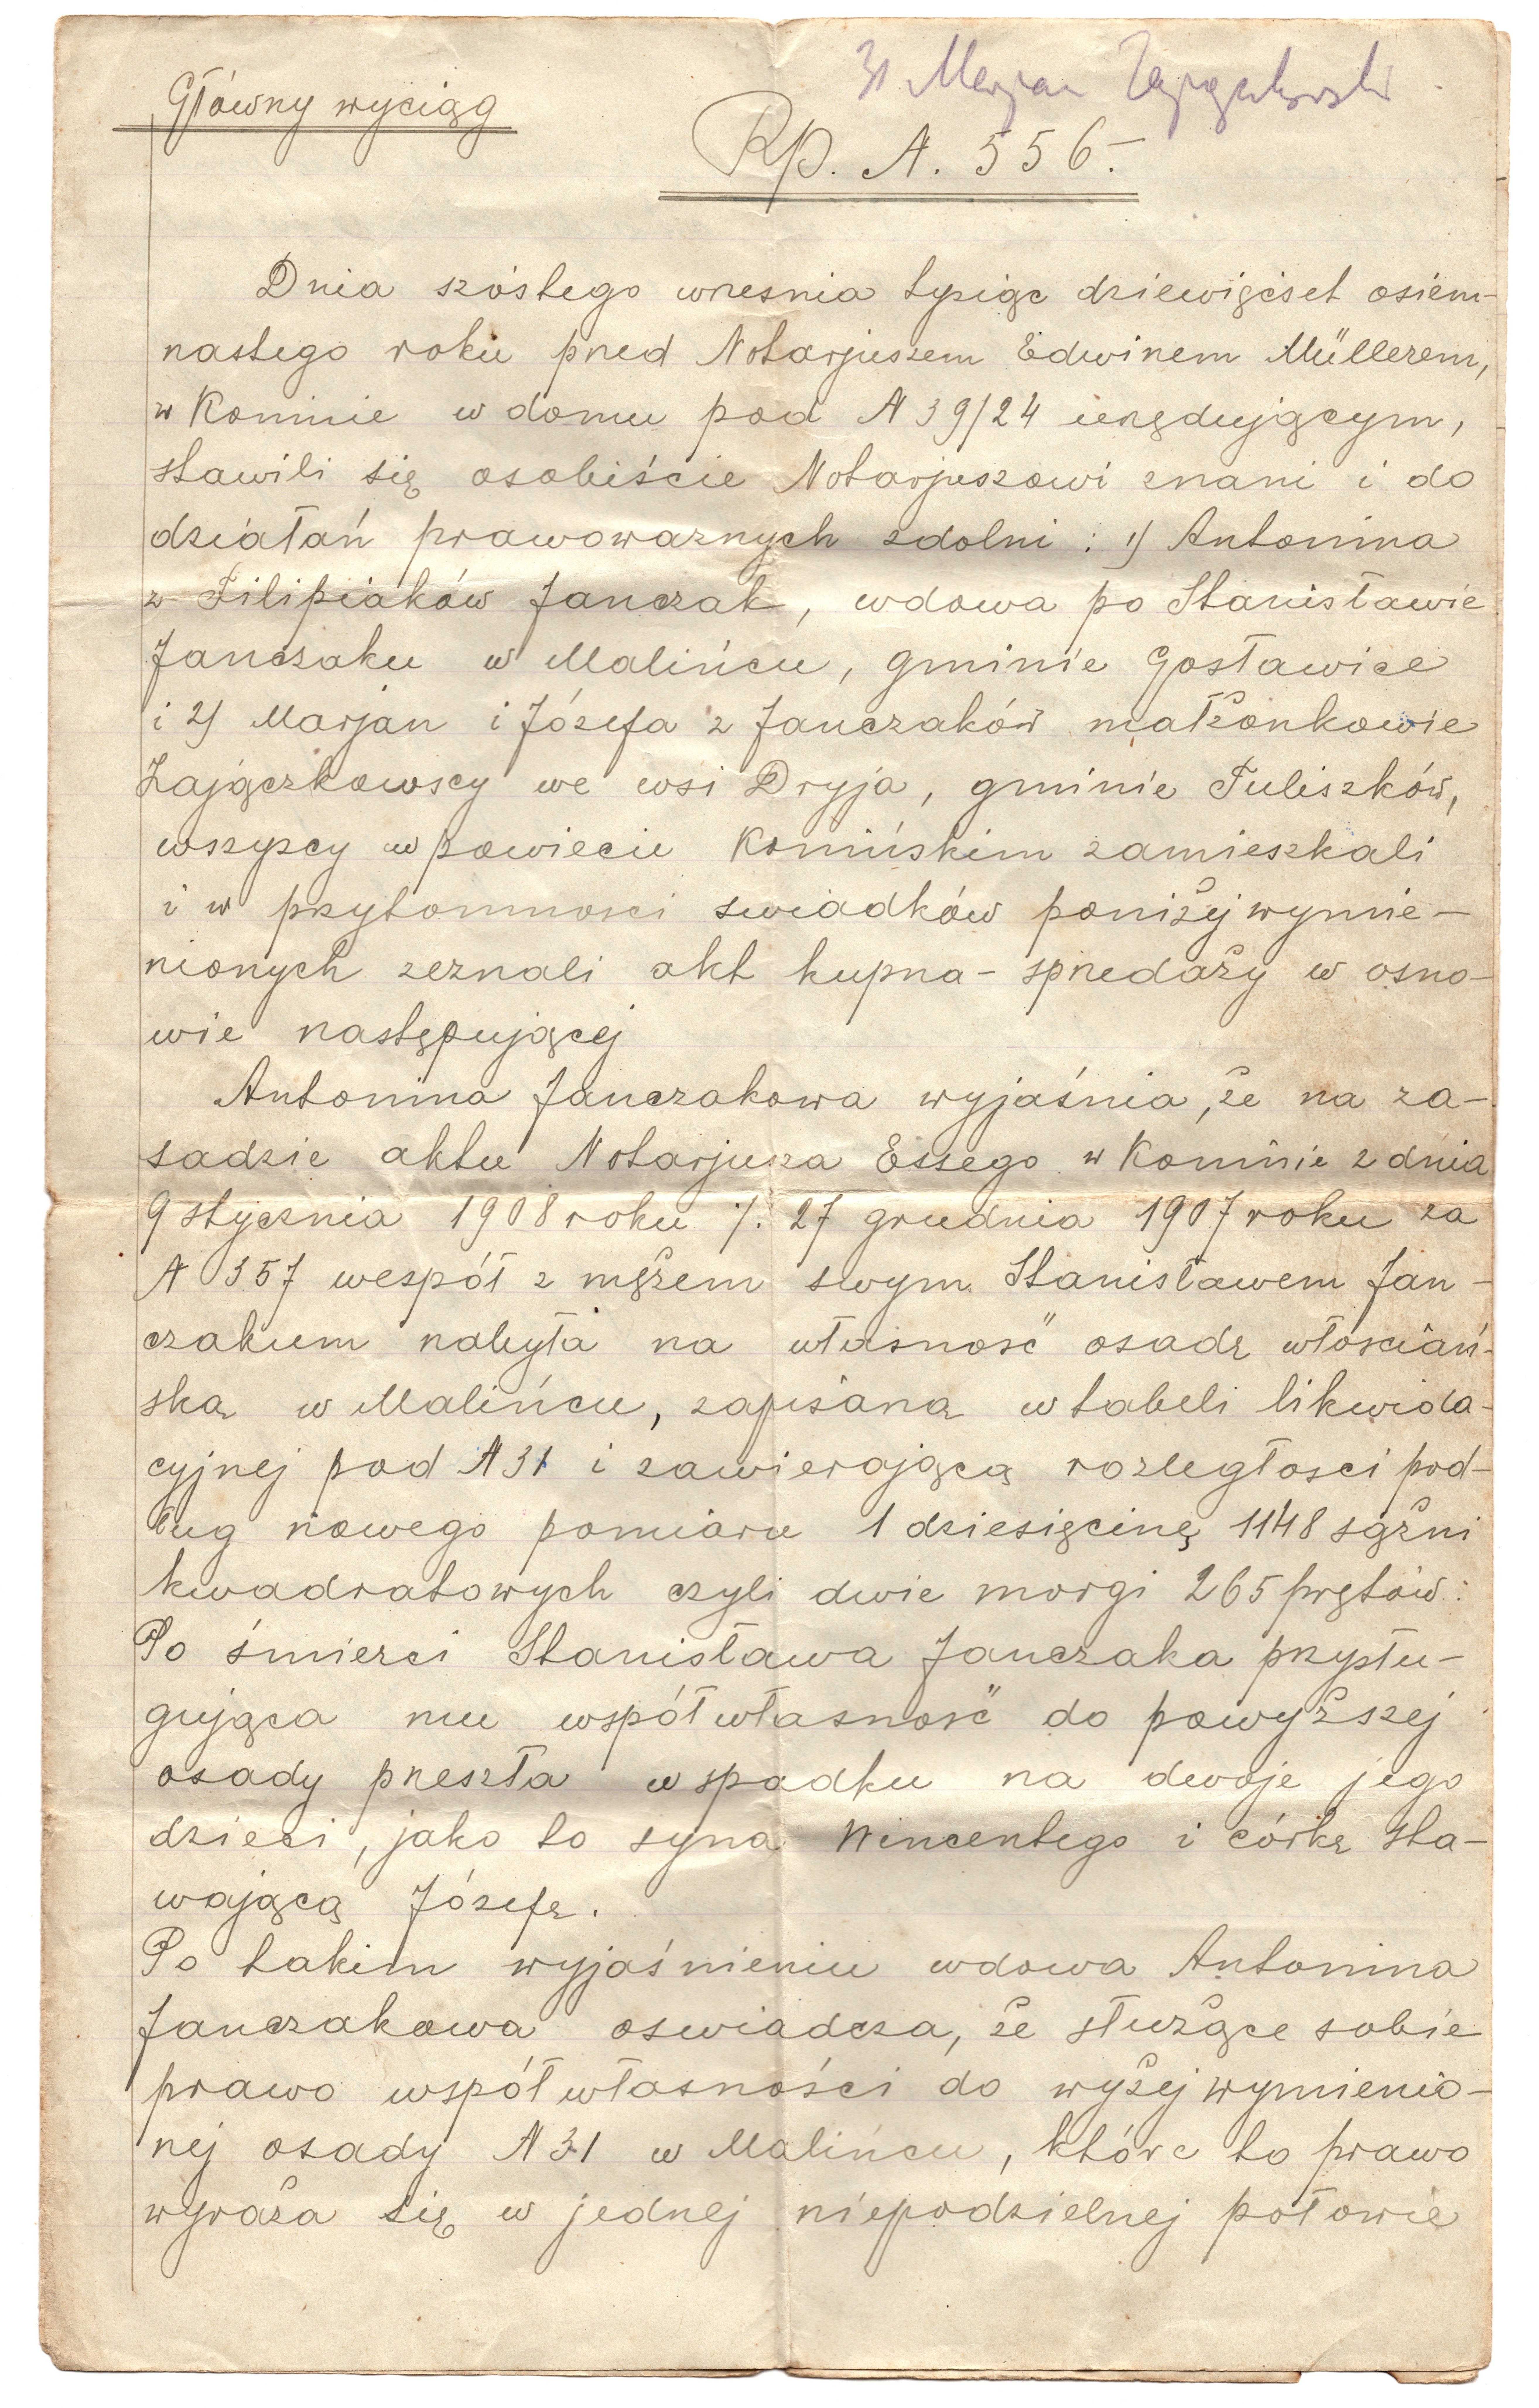 31 Marjan Zajączkowski
Główny wyciąg
Rp. N. 556.-
Dnia szóstego wrzesnia tysiąc dziewięćset osiem-
nastego roku przed Notarjuszem Edwinem Müllerem,
w Koninie w domu pod N 39/24 urzędującym,
stawili się osobiście Notarjuszowi znani i do
działań prawoważnych zdolni: 1) Antonina
z Filipiaków Janczak, wdowa po Stanisławie
Janczaku w Malińcu, gminie Gosławice
i 2) Marjan i Józefa z Janczaków małżonkowie
Zajączkowscy we wsi Dryja, gminie Tuliszków,
wszyscy w powiecie Konińskim zamieszkali
i w przytomnosci swiadków poniżej wymie-
nionych zeznali akt kupna-sprzedaży w osno-
wie następującej
Antonina Janczakowa wyjaśnia, że na za-
sadzie aktu Notarjusza Essego w Koninie z dnia
9 stycznia 1908 roku /. 27 grudnia 1907 roku za
N 357 wespół z mężem swym Stanisławem Jan-
czakiem nabyła na własność osadę włościań-
ską w Malińcu, zapisaną w tabeli likwida-
cyjnej pod N 31 i zawierającą rozległosci pod-
ług nowego pomiaru 1 dziesięcinę 1148 sążni
kwadratowych czyli dwie morgi 265 prętów.
Po śmierci Stanisława Janczaka przysłu-
gująca mu współwłasność do powyższej
osady przeszła w spadku na dwoje jego
dzieci, jako to syna Wincentego i córkę sta-
wającą Józefę.
Po takim wyjaśnieniu wdowa Antonina
Janczakowa oswiadcza, że służące sobie
prawo współwłasności do wyżej wymienio-
nej osady N 31 w Malińcu, które to prawo
wyraża się w jednej niepodzielnej połowie